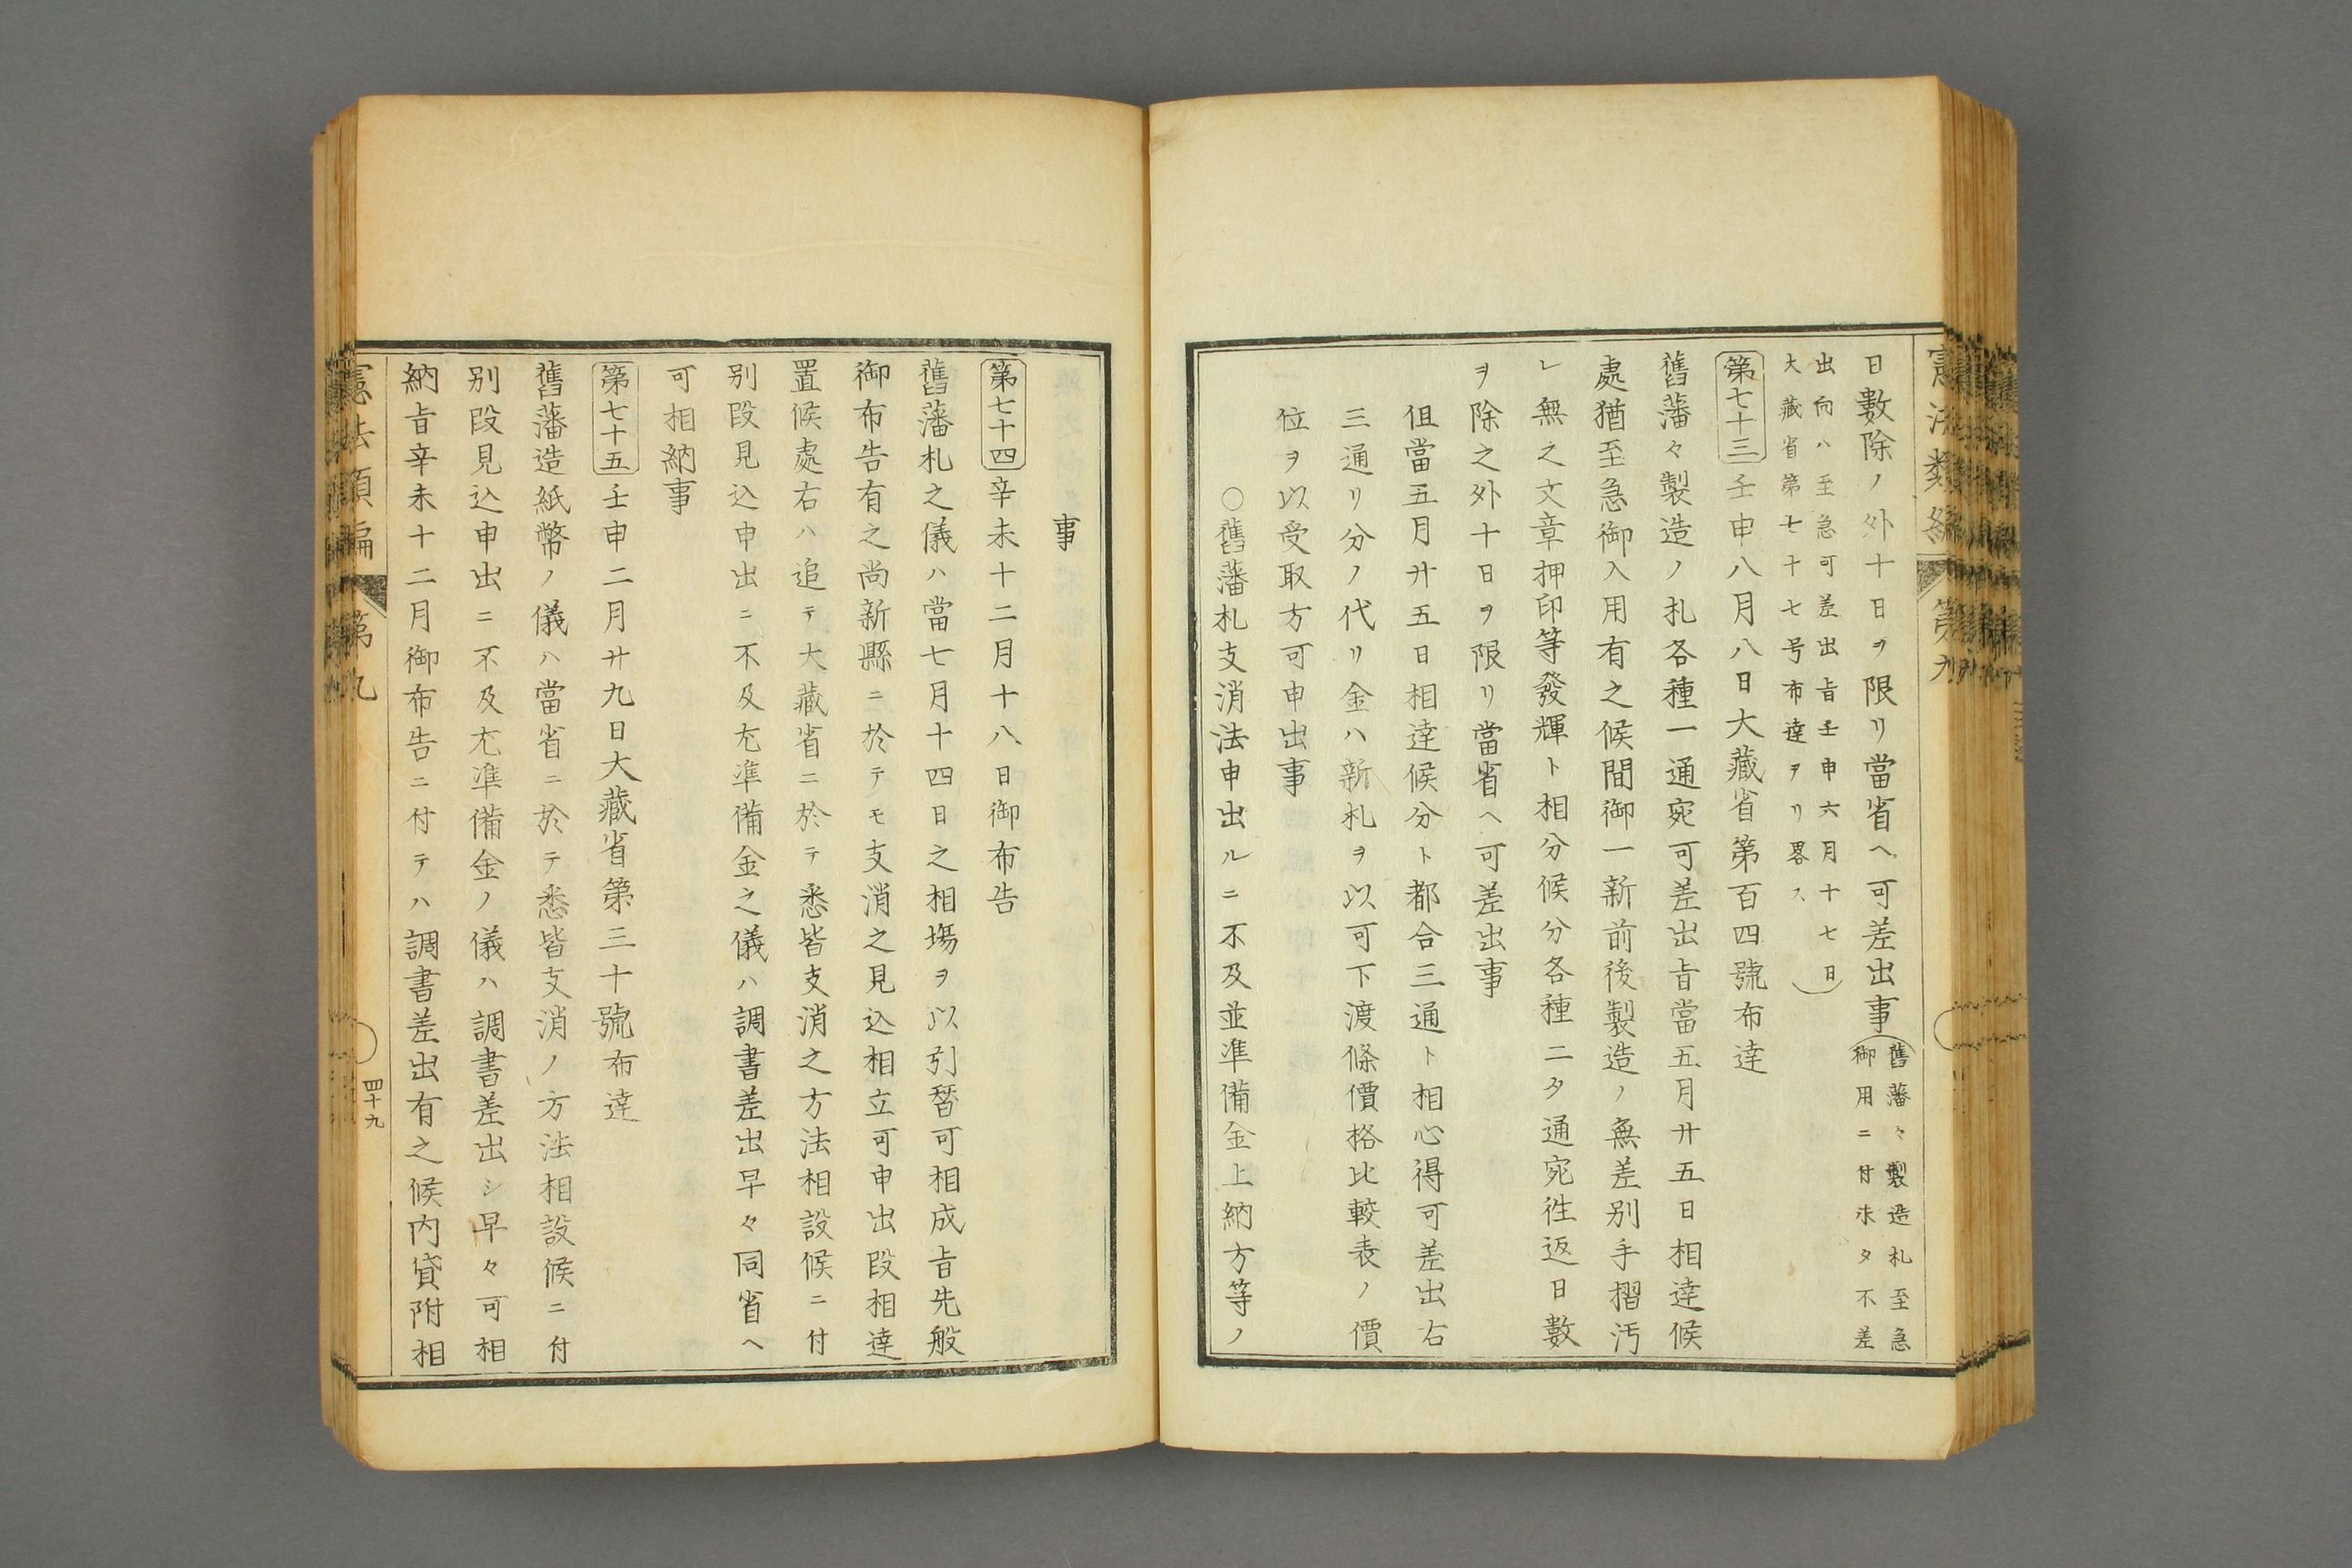 憲法類編 第九
日數除ノ外十日ヲ限リ當省ヘ可差出事(舊藩々製造札至急
御用ニ付未タ不差
出向ハ至急可差出旨壬申六月十七日
大藏省第七十七号布達ヲリ畧ス)
第七十三 壬申八月八日大藏省第百四號布達
舊藩々製造ノ札各種一通宛可差出旨當五月廿五日相達候
處猶至急御入用有之候間御一新前後製造ノ無差別手摺汚
レ無之文章押印等發輝ト相分候分各種二タ通宛徃返日數
ヲ除之外十日ヲ限リ當省ヘ可差出事
伹當五月廿五日相達候分ト都合三通ト相心得可差出右
三通リ分ノ代リ金ハ新札ヲ以可下渡條價格比較表ノ價
位ヲ以受取方可申出事
○舊藩札支消法申出ルニ不及並準備金上納方等ノ
事
第七十四 辛未十二月十八日御布告
舊藩札之儀ハ當七月十四日之相塲ヲ以引替可相成旨先般
御布告有之尚新縣ニ於テモ支消之見込相立可申出段相達
置候處右ハ追テ大藏省ニ於テ悉皆支消之方法相設候ニ付
別段見込申出ニ不及尤準備金之儀ハ調書差出早々同省ヘ
可相納事
第七十五 壬申二月廿九日大藏省第三十號布達
舊藩造紙幣ノ儀ハ當省ニ於テ悉皆支消ノ方法相設候ニ付
別段見込申出ニ不及尤準備金ノ儀ハ調書差出シ早々可相
納旨辛未十二月御布告ニ付テハ調書差出有之候内貸附相
憲法類編 第九
四十九